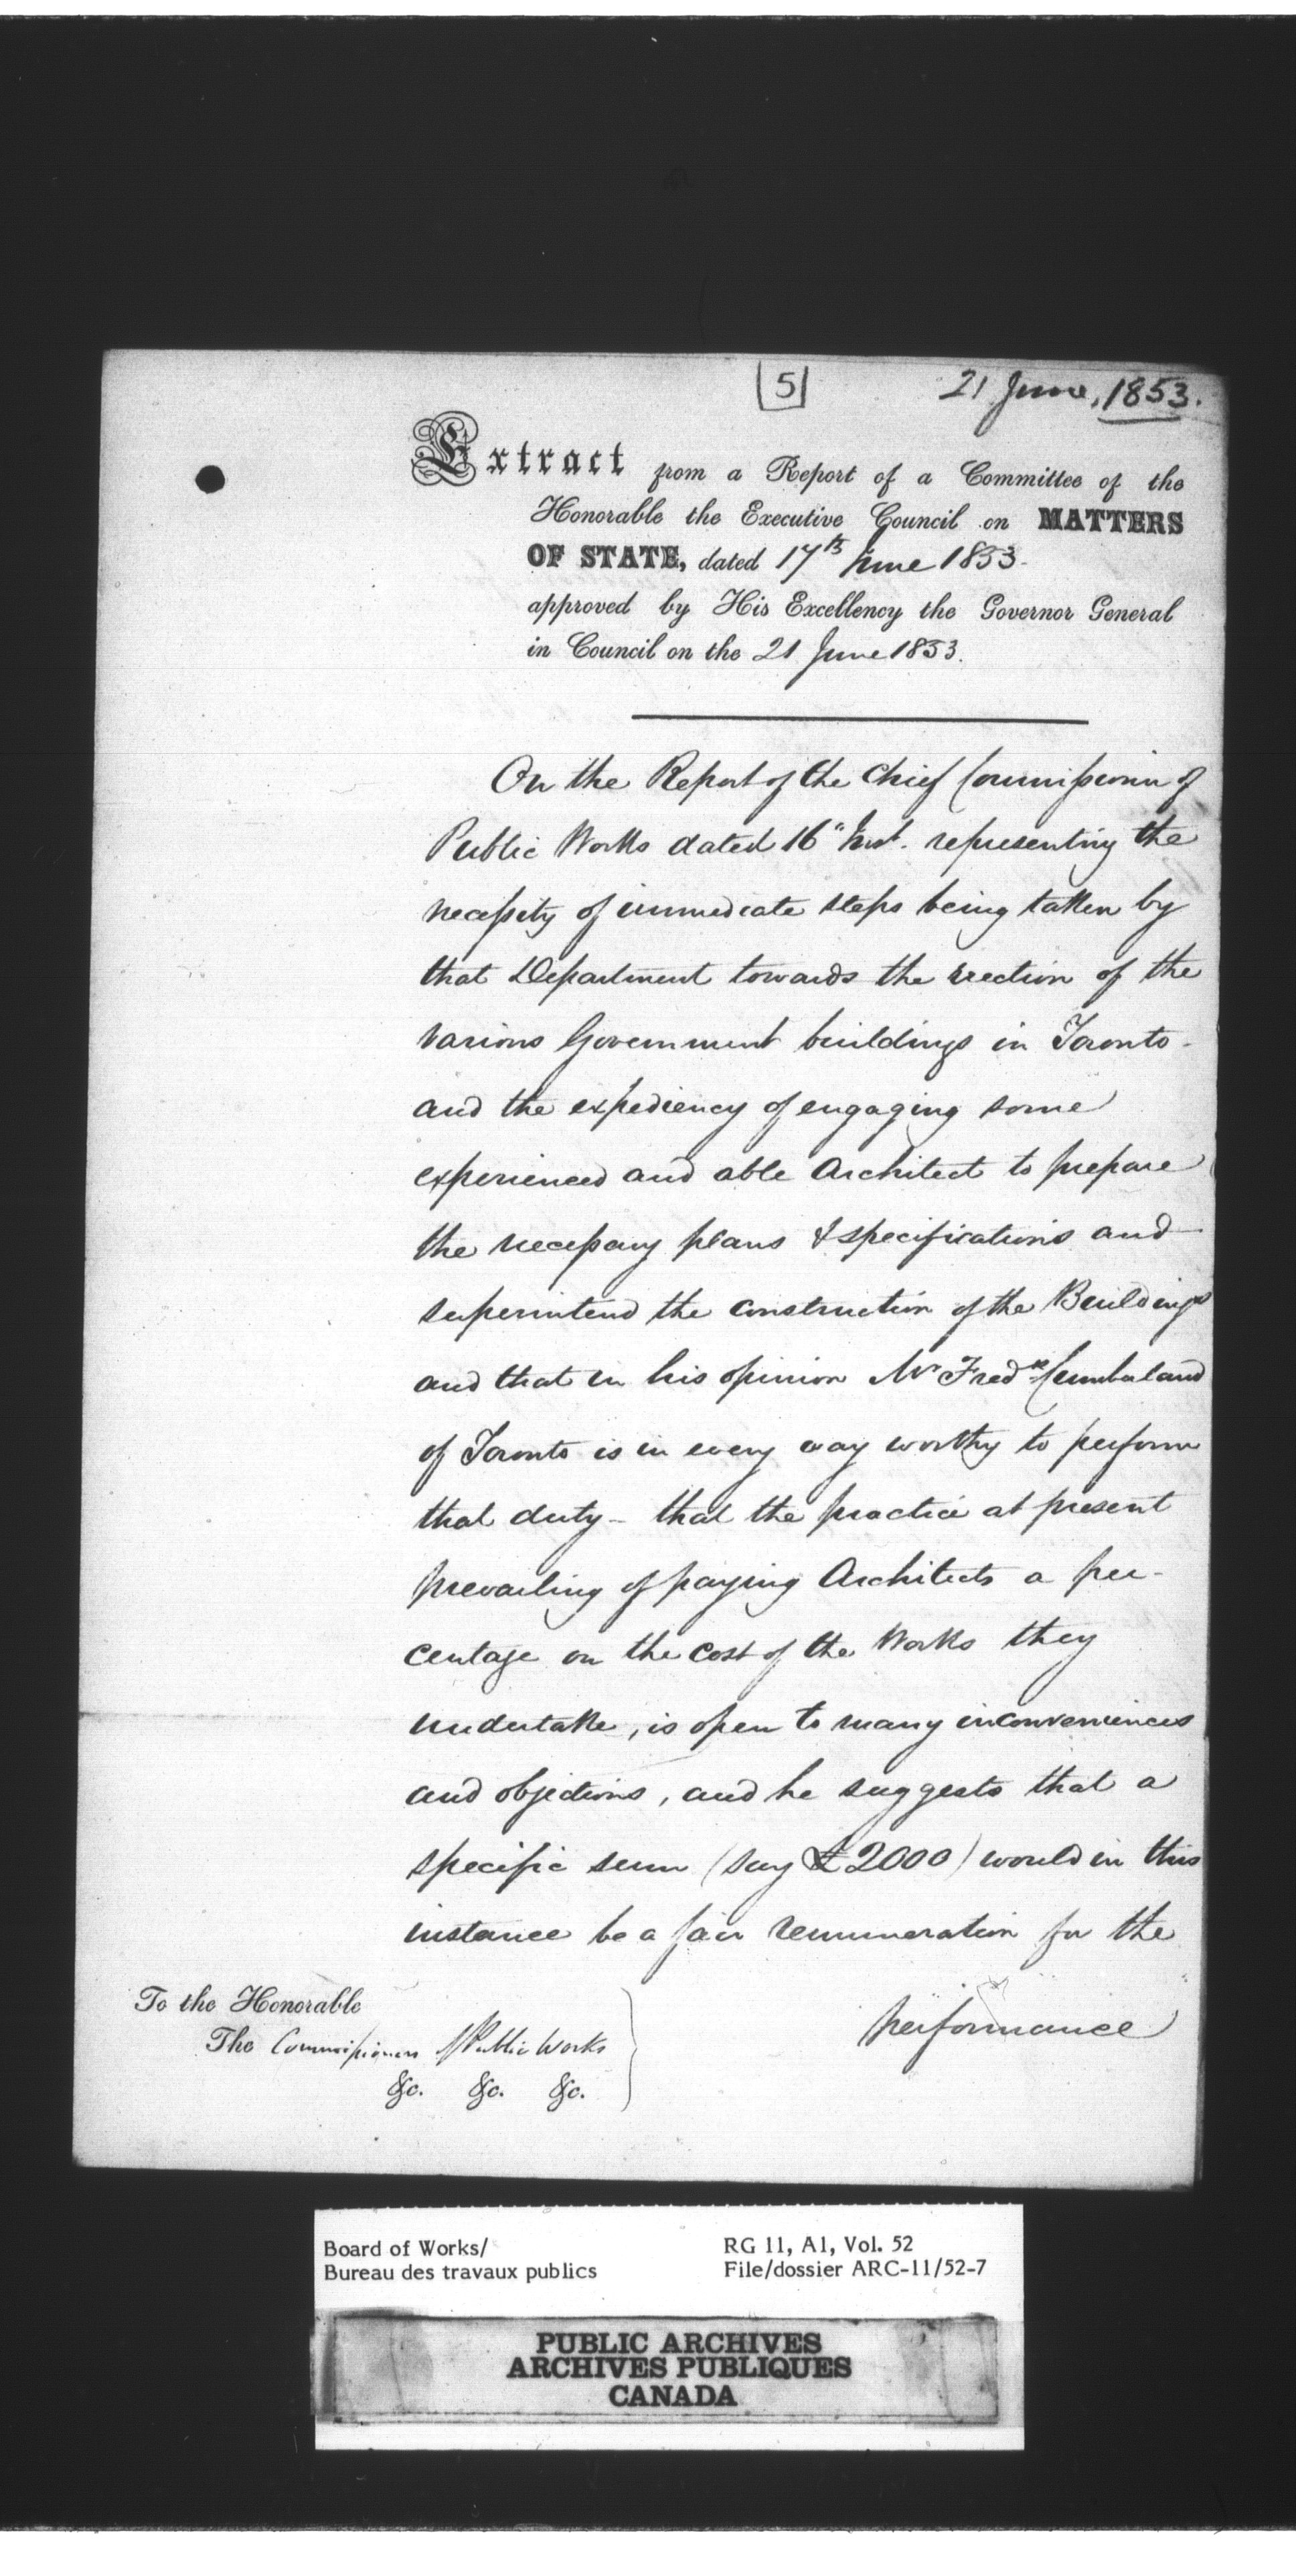 5
21 June, 1853.
Extract from a Report of a Committee of the
Honorable the Executive Council on MATTERS
OF STATE, dated 17th June 1853.
approved by His Excellency the Governor General
in Council on the 21 June 1853.
On the Report of the Chief Commissioner of
Public Works dated 16" Inst. representing the
necessity of immediate steps being taken by
that Department towards the erection of the
various Government buildings in Toronto -
and the expediency of engaging some
experienced and able Architect to prepare
the necessary plans & specifications and
superintend the construction of the Buildings
and that in his opinion Mr Fredk Cumberland
of Toronto is in every way worthy to perform
that duty - that the practice at present
prevailing of paying Architects a per-
centage on the cost of the Works they
undertake, is open to many inconveniences
and objections, and he suggests that a
specific sum (say £2000) would in this
instance be a fair remuneration for the
performance
To the Honorable
The Commissioners of Public Works
&c. &c. &c.
Board of Works/
Bureau des travaux publics
RG 11, A1, Vol. 52
File/dossier ARC-11/52-7
PUBLIC ARCHIVES
ARCHIVES PUBLIQUES
CANADA